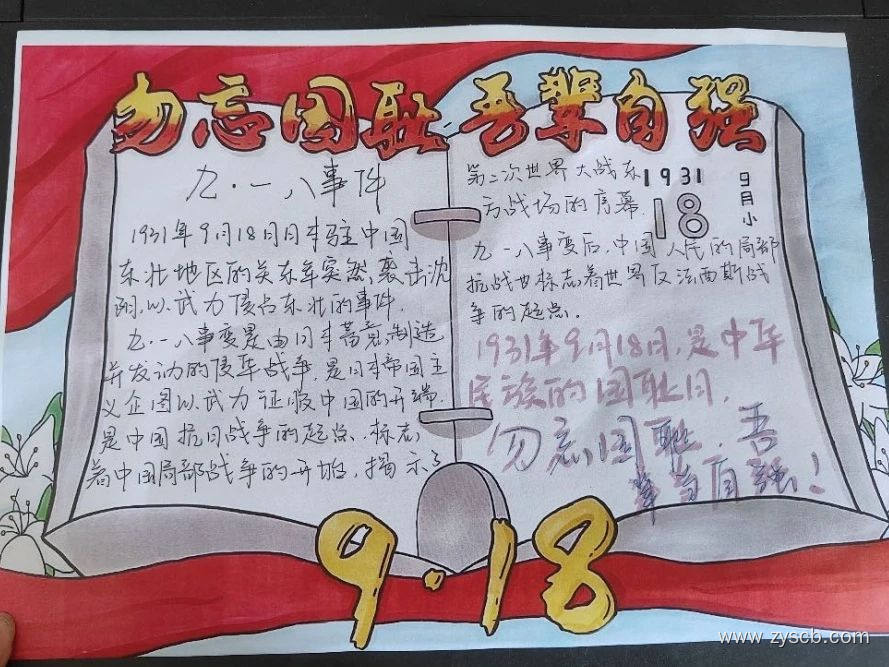 勿忘国耻 吾辈自强
九·一八事件
1931年9月18日日本驻中国
东北地区的关东军突然袭击沈
阳,以武力侵占东北的事件.
九·一八事变是由日本蓄意制造
并发动的侵华战争,是日本帝国主
义企图以武力征服中国的开端.
是中国抗日战争的起点.标志
着中国局部战争的开始,揭示了
第二次世界大战东
方战场的序幕.
1931
18
9月小
九一八事变后,中国人民的局部
抗战也标志着世界反法西斯战
争的起点.
1931年9月18日,是中华
民族的国耻日,
勿忘国耻.吾
辈当自强!
9·18
www.zyscb.com